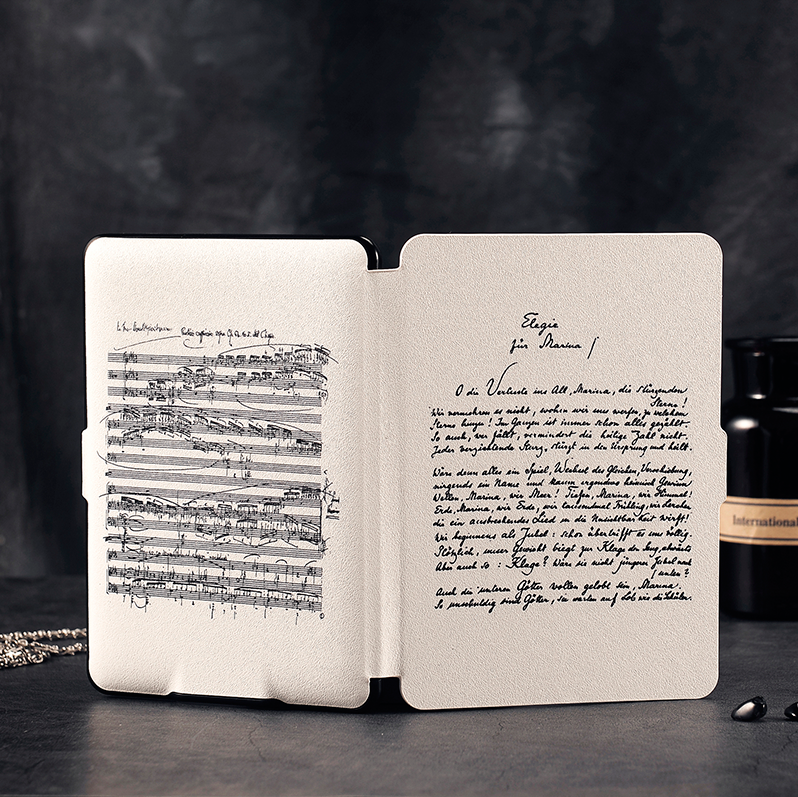 Elegie
für Marina
O die Verluste ins All, Marina, die stürzenden
Sterne!
Wir vermehren es nicht, wohin wir uns werfen, zu welchem
Sterne hinzu! Im Ganzen ist immer schon alles gezählt.
So auch, wer fällt, vermindert die heilige Zahl nicht.
Jeder verzichtende Sturz, stürzt in den Ursprung und heilt.
Wäre denn alles ein Spiel, Wechsel des Gleichen, Verschiebung,
nirgends ein Name und kaum irgendwo heimisch Gewinn
Wellen, Marina, wir Meer! Tiefen, Marina, wir Himmel!
Erde, Marina, wir Erde, wir tausendmal Frühling, wie Lerchen
die ein ausbrechendes Lied in die Unsichtbarkeit wirft!
Wir beginnens als Jubel: schon übertrifft es uns völlig.
Plötzlich, unser Gewicht biegt zur Klage den Sang abwärts
Aber auch so: Klage? Wäre sie nicht jüngerer Jubel nach
unten?
Auch die unteren Götter wollen gelobt sein, Marina.
So unschuldig sind Götter, sie warten auf Lob wie die Schüler.
International